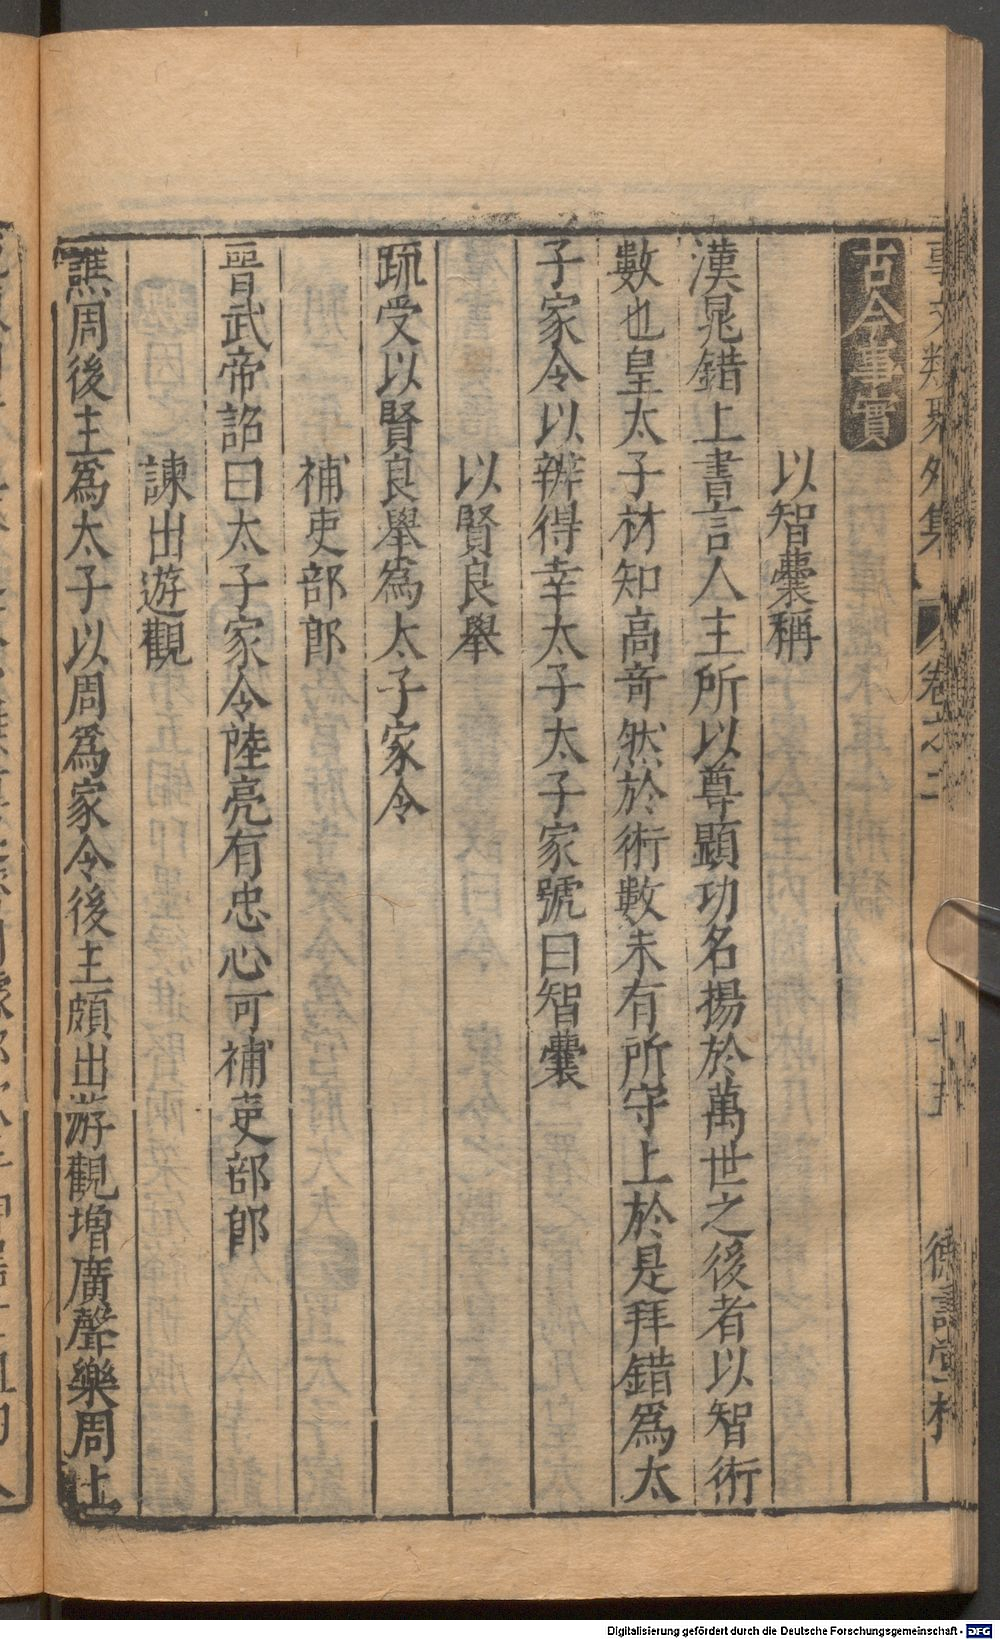 事文類聚外集 卷之二
德壽堂梓
古今事實
以智囊稱
漢晁錯上書言人主所以尊顯功名揚於萬世之後者以智術
數也皇太子材知高竒然於術數未有所守上於是拜錯爲太
子家令以辨得幸太子太子家號曰智囊
以賢良舉
疏受以賢良舉爲太子家令
補吏部郎
晉武帝詔曰太子家令陸亮有忠心可補吏部郎
諫出遊觀
譙周後主爲太子以周爲家令後主頗出游觀增廣聲樂周上
Digitalisierung gefördert durch die Deutsche Forschungsgemeinschaft - DFG